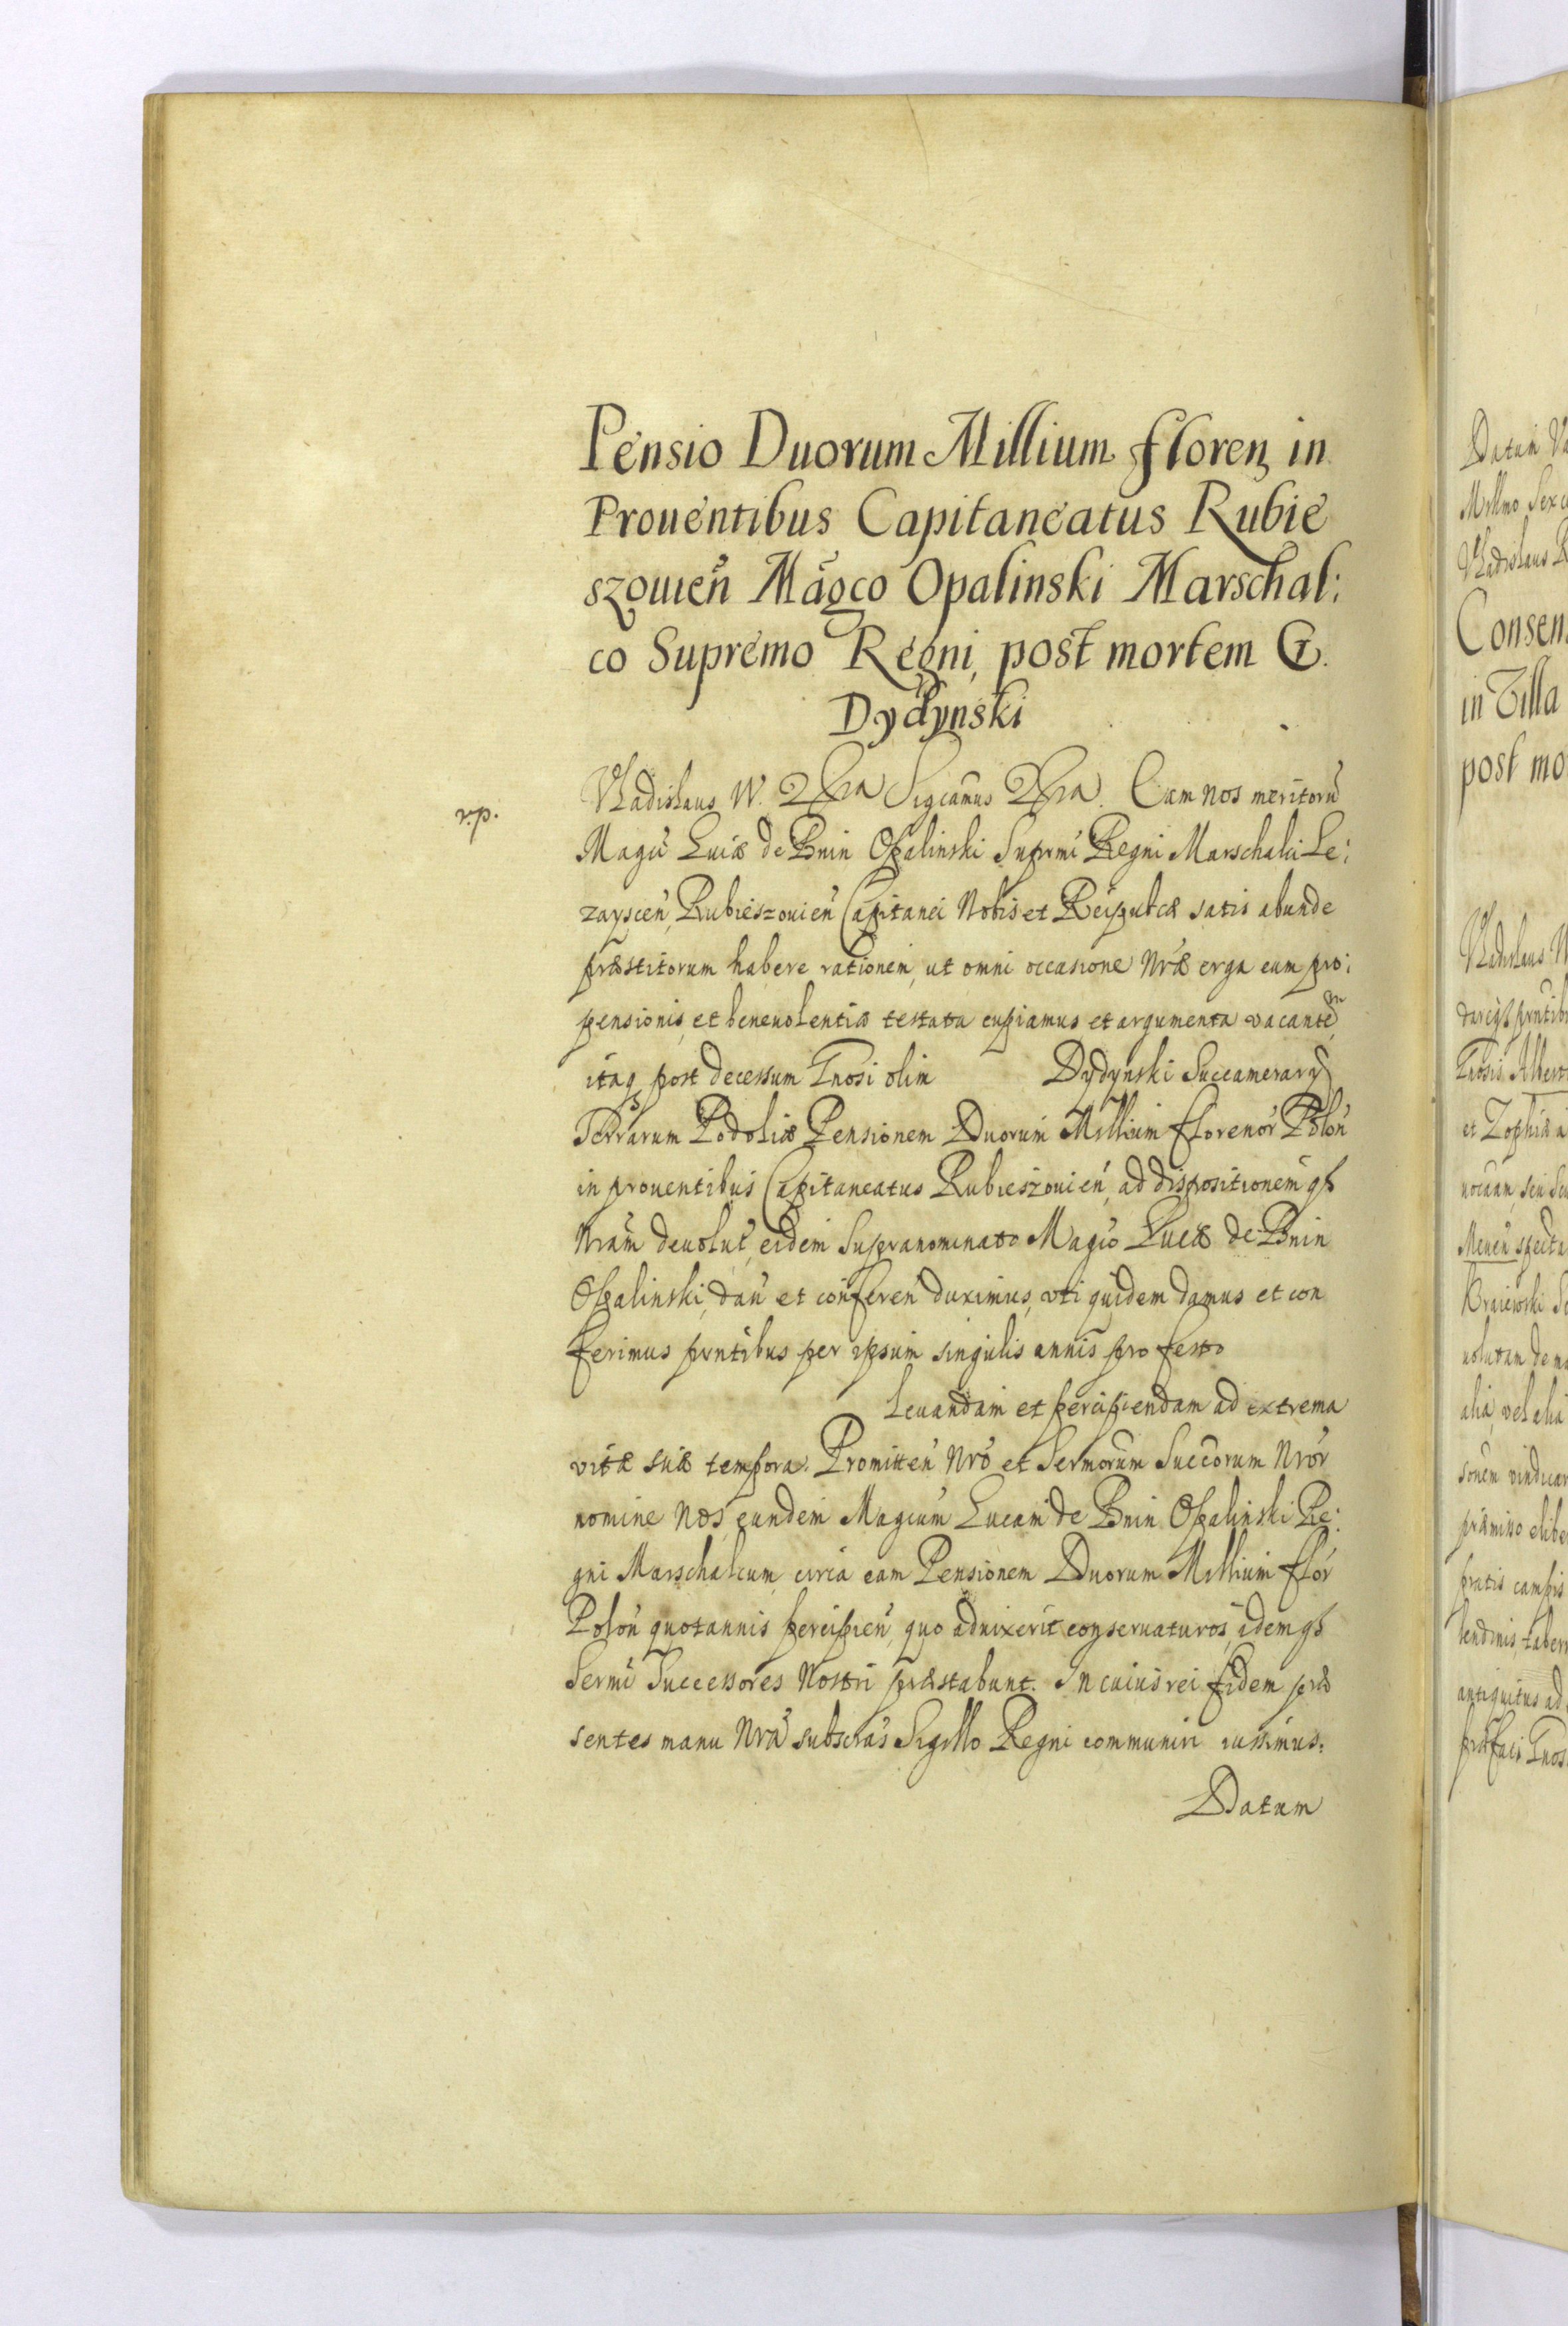 Pensio Duorum Millium floren in
Prouentibus Capitaneatus Rubie
szouien Magco Opalinski Marschal:
co Supremo Regni, post mortem G.
Dydynski
r.p.
Vladislaus IV. Significamus Cum nos meritoru
Magci Lucæ de Bnin Opalinski Supremi Regni Marschalci Le:
zayscen, Rubieszouien Capitanei Nobis et Reipubcæ satis abunde
præstitorum habere rationem, ut omni occasione Nræ erga eum pro:
pensionis, et beneuolentiæ testata cupiamus et argumenta vacantem
itaq post decessum Gnosi olim Dydynski Succamerarij
Terrarum Podoliæ Pensionem Duorum Millium florenor Polon
in prouentibus Capitaneatus Rubieszouien, ad dispositionem qs
Nram deuolut, eidem Supranominato Magco Lucæ de Bnin
Opalinski, dan et conferen duximus, vti quidem damus et con
ferimus pntibus per ipsum singulis annis pro festo
Leuandam et percipiendam ad extrema
vitæ suæ tempora. Promitten Nro et Sermorum Succorum Nror
nomine Nos eundem Magcum Lucam de Bnin Opalinski Re:
gni Marschalcum circa eam Pensionem Duorum Millium flor
Polon quotannis percipien, quo aduixerit conseruaturos, idem qs
Sermi Successores Nostri præstabunt. In cuius rei fidem præ
sentes manu Nra subscras Sigillo Regni communiri iussimus.
Datum
Datum
Millmo Sex
Vladislaus
Consen
in Villa
post mo
Vladislaus
Gnosis Albert
et Zophiæ
Meuen specta
Kraiewski
uolutam de
alia, vel alia
præmisso
pratis campis
antiquitus ad
præfati Gnos